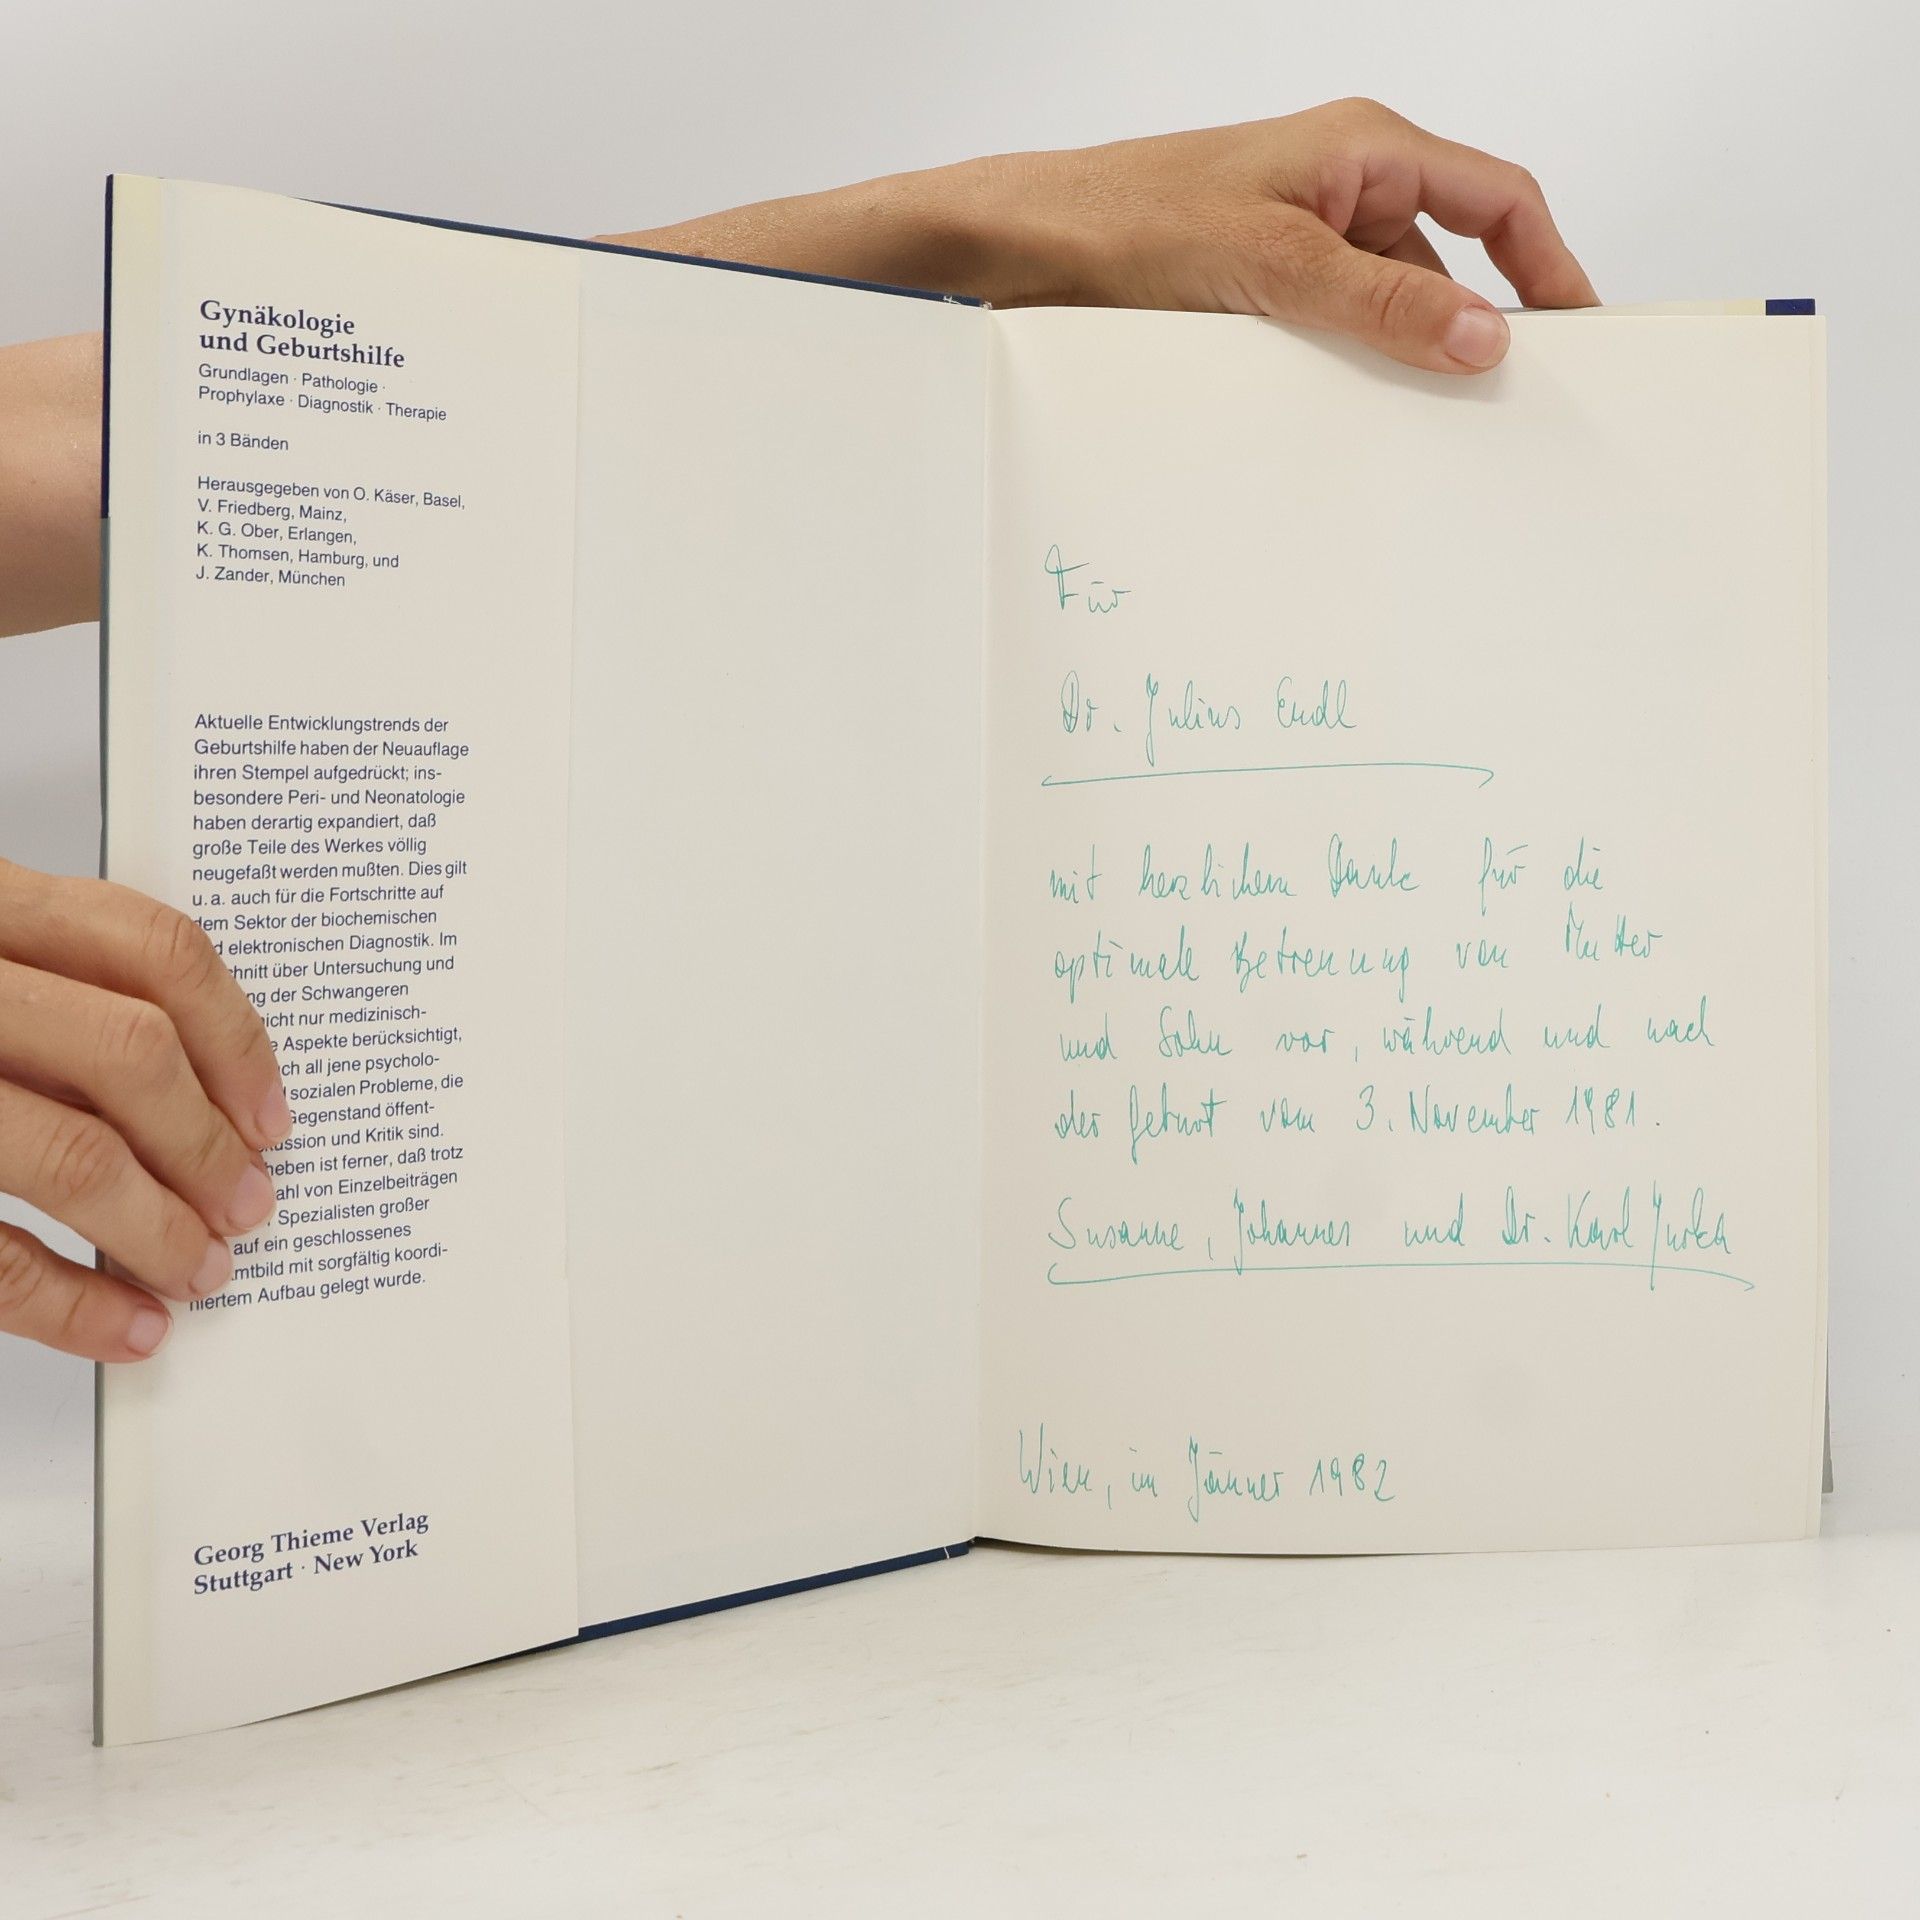 Gynäkologie
und Geburtshilfe
Grundlagen · Pathologie ·
Prophylaxe · Diagnostik · Therapie
in 3 Bänden
Herausgegeben von O. Käser, Basel,
V. Friedberg, Mainz,
K. G. Ober, Erlangen,
K. Thomsen, Hamburg, und
J. Zander, München
Aktuelle Entwicklungstrends der
Geburtshilfe haben der Neuauflage
ihren Stempel aufgedrückt; ins-
besondere Peri- und Neonatologie
haben derartig expandiert, daß
große Teile des Werkes völlig
neugefaßt werden mußten. Dies gilt
u. a. auch für die Fortschritte auf
dem Sektor der biochemischen
d elektronischen Diagnostik. Im
chnitt über Untersuchung und
ng der Schwangeren
icht nur medizinisch-
e Aspekte berücksichtigt,
ch all jene psycholo-
sozialen Probleme, die
Gegenstand öffent-
ussion und Kritik sind.
heben ist ferner, daß trotz
ahl von Einzelbeiträgen
Spezialisten großer
auf ein geschlossenes
mtbild mit sorgfältig koordi-
niertem Aufbau gelegt wurde.
Georg Thieme Verlag
Stuttgart · New York
Für
Dr. Julius Endl
mit herzlichem Dank für die
optimale Betreuung von Mutter
und Sohn vor, während und nach
der Geburt vom 3. November 1981.
Susanne, Johannes und Dr. Karl
Wien, im Jänner 1982